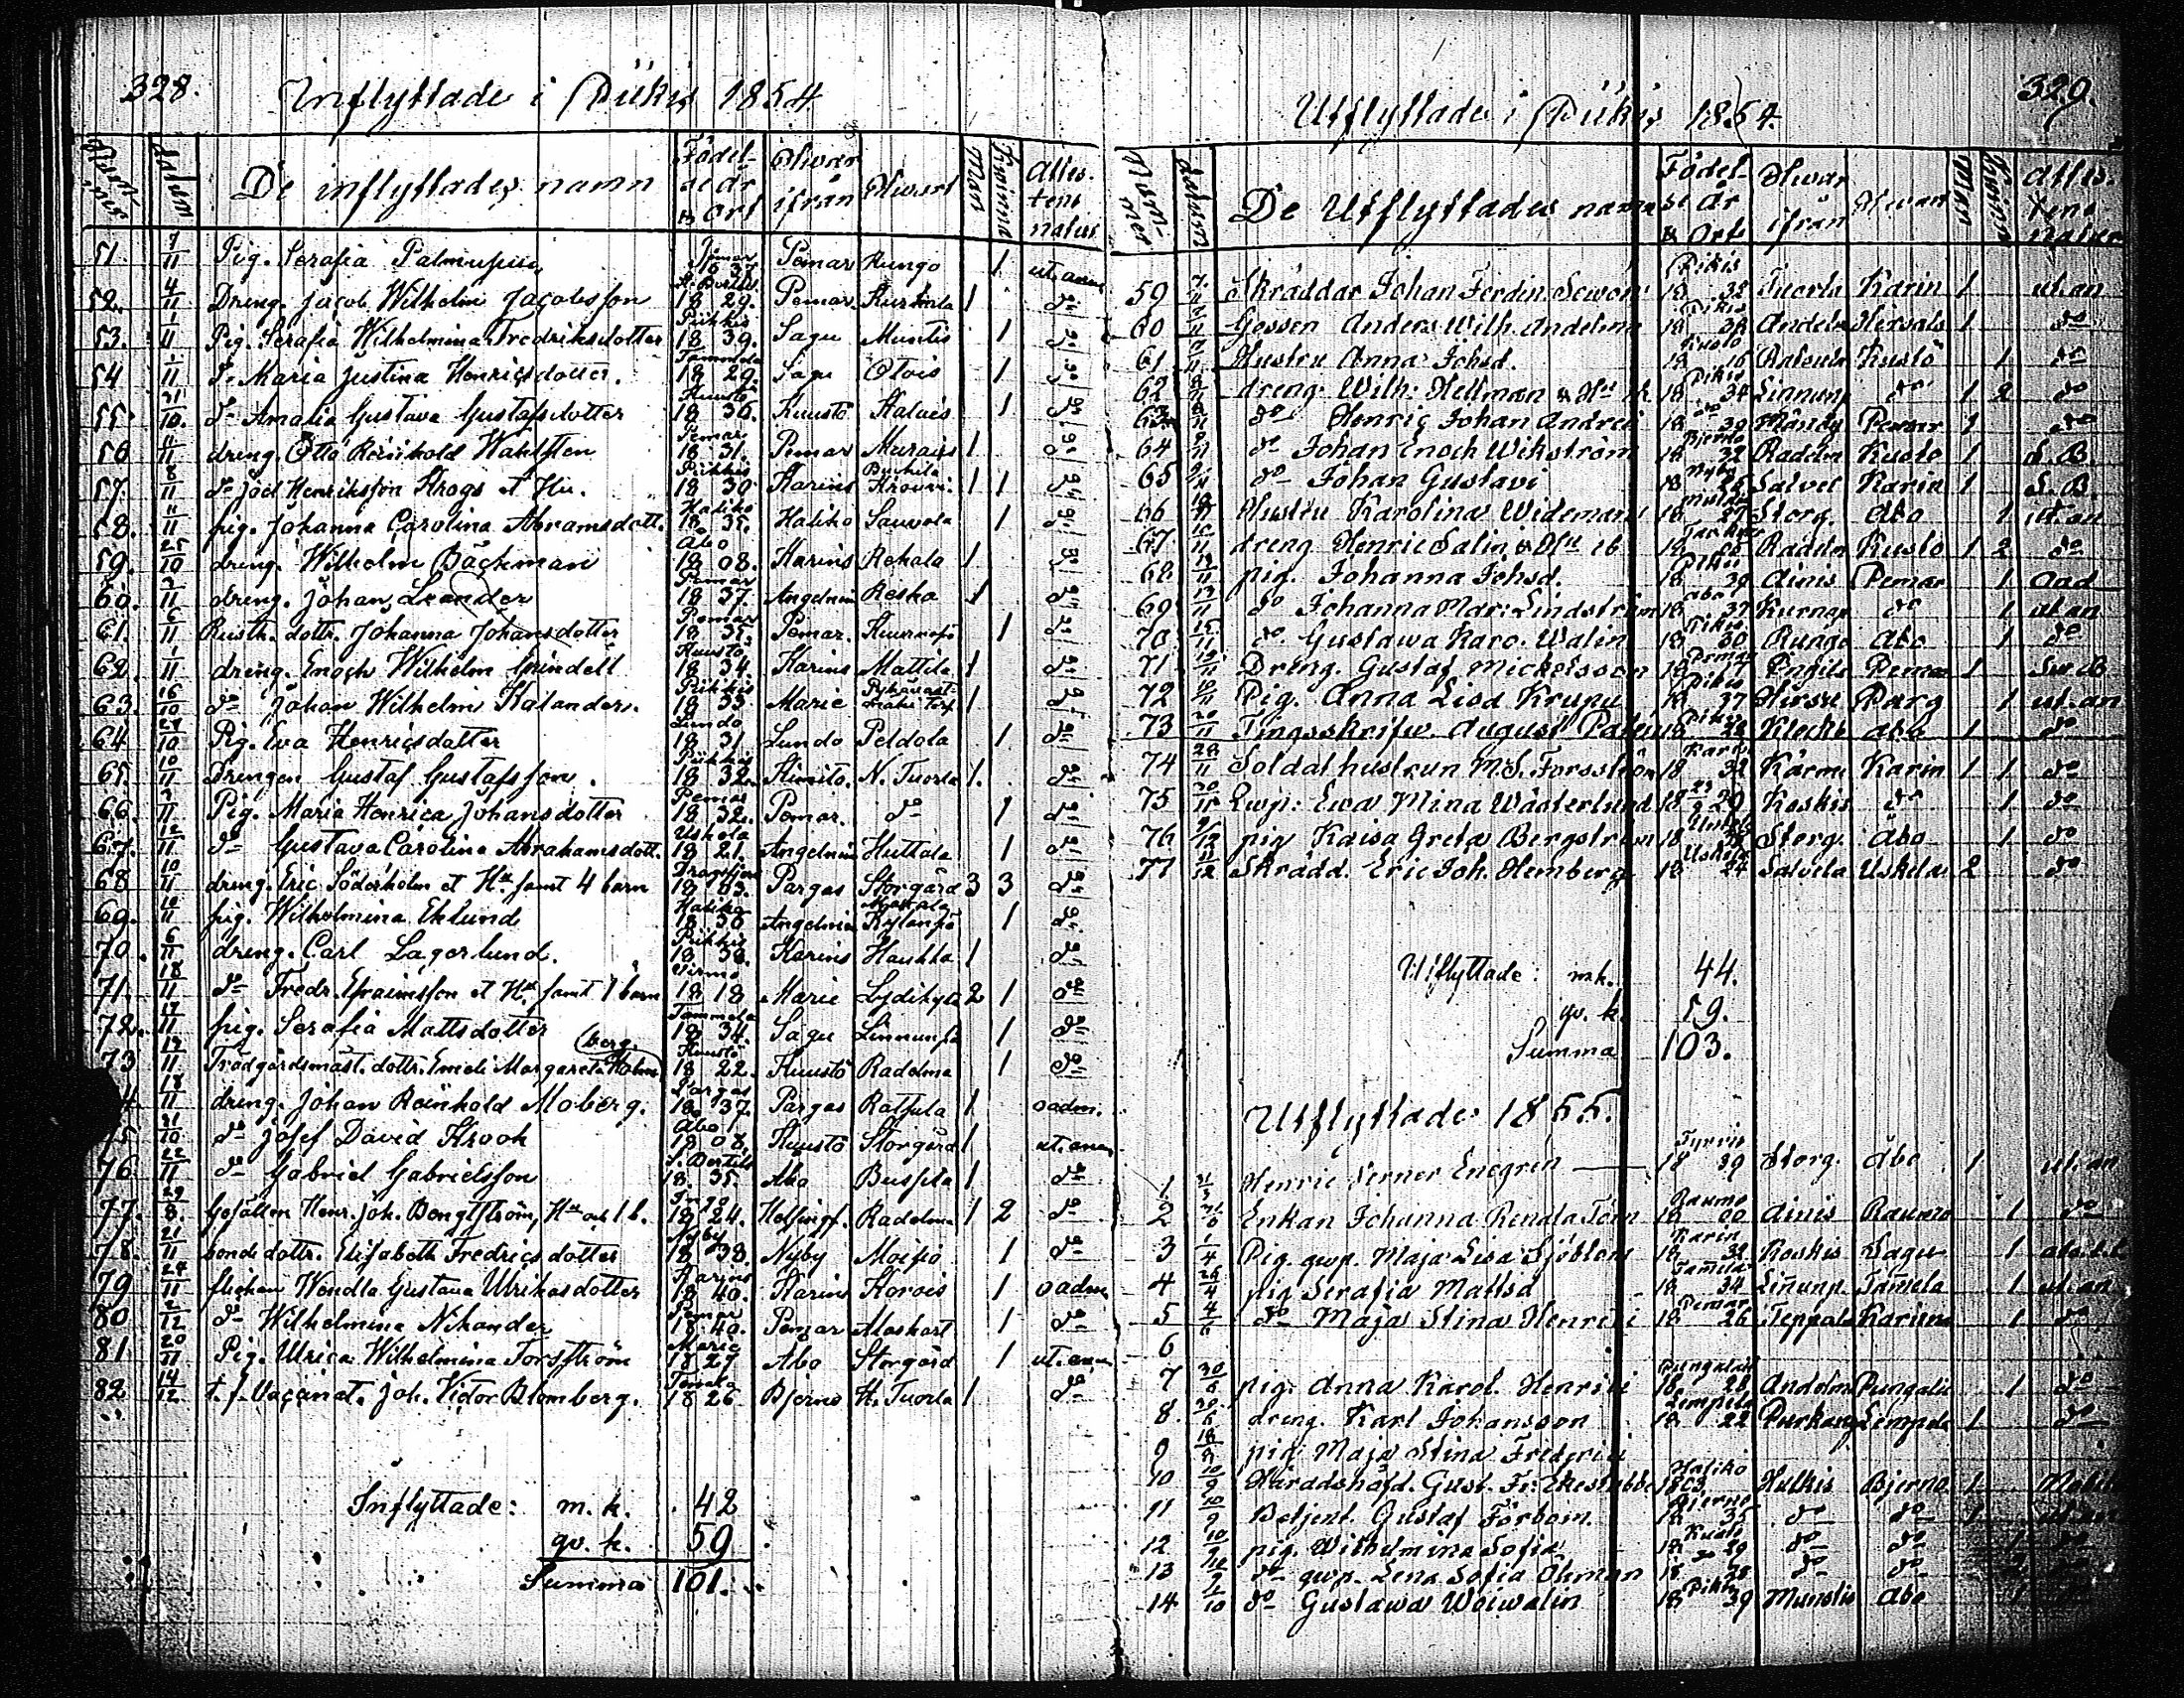 328.
Inflyttade i Pikis 1854
Nummer datum De inflyttades namn Födelseår & Ort Hvarifrån Hvart Man Kvinna Attestens natur
51. 7/11 Pig. Serafia Pemar 18 37. Pemar Rungo 1 ut. anm
52. 4/11 Dreng. Jacob Wilhelm Jacobsson 18 29. Pemar 1 do
53. 1/11 Pig. Serafia Wilhelmina Fredriksdotter Piikkis 18 39. Sagu Muntis 1 do
54 1/11 do Maria Justina Henricsdotter. Tammela 18 29. Sagu Otois 1 do
55. 31/10. do Amalia Gustava Gustafsdotter Kuusto 18 36. Kuustö Halais 1 do
56 11/11 dreng. Otto Reinhold Wahlsten Pemar 18 31. Pemar Murais 1 do
57. 8/11 do Joel Henriksson Krogs et Hu. Piikkis 18 30 Karins 1 1 do
58. 11/11 pig. Johanna Carolina Abramsdott. Haliko 18 35. Haliko Sauvola 1 do
59. 25/10 dreng. Wilhelm Bäckman Åbo 18 08. Karins Rekala 1 do
60. 2/11 dreng. Johan Leander Pemar 18 37. Angelnim Reska 1 do
61. 6/11 Rusth. dottr. Johanna Johansdotter Pemar 18 35. Pemar. 1 do
62. 1/11 dreng. Enoch Wilhelm Grindell Kuusto 18 34. Karins Mattila 1 do
63. 16/10 do Johan Wilhelm Kalander. Piikkis 18 33 Marie 1 do
64 27/10 Pig. Eva Henricsdotter Lundo 18 31 Lundo Peldola 1 do
65. 10/11 Drengen Gustaf Gustafsson. Piikkis 18 32. Kimito. N. Tuorla 1. do
66. 2/11 Pig. Maria Henrica Johansdotter Pemar 18 32. Pemar. do 1 do
67. 12/11 do Gustava Carolina Abrahamsdott. Uskela 18 21. Angelnim Huttala 1 do
68 10/11 dreng. Eric Söderholm et Hu samt 4 barn Dragsfjerd 18 03. Pargas Storgård 3 3 do
69. 10/11 pig. Wilhelmina Eklund Haliko 18 38 Angelnim 1 do
70. 6/11 dreng. Carl Lagerlund. Piikkis 18 38. Karins Haukka 1 do
71. 18/11 do Fredr. Efraimsson et Hu. samt 1 barn Virmo 18 18 Marie 2 1 do
72. 17/11 pig. Serafia Mattsdotter Tammela 18 34. Sagu Linnunpä 1 do
73 12/11 Trädgårdsmäst. dottr. Emeli Margareta Holmberg. Kuusto 18 22. Kuustö Radelma 1 do
4. 18/11 dreng. Johan Reinhold Moberg. Pargas 18 37. Pargas Ratsula 1 oadm.
75. 31/10 do Josef David Krook Åbo 18 08. Kuustö Storgård 1 ut. anm
76 22/11 do Gabriel Gabrielsson S. Bertils 18. 35. Åbo Busila 1 do
77. 29/8. Gesällen Henr. Joh. Bengtström, Hu och 1 b. 18 24. Helsingf. Radelma 1 2 do
78. 21/11 bonde dottr. Elisabeth Fredricsdotter Nyby 18 38. Nyby Moisio 1 do
79 24/11 flickan Wendla Gustava Ulrikasdotter Karins 18 40. Karins Korois 1 oadm
80 2/12 do Wilhelmina Nikander Pemar 18 40. Pemar 1 do
81. 20/11 Pig. Ulrica Wilhelmina Forsström Marie 18 27 Abo Storgård 1 ut. anm
82 14/12 t. f. Vaccinat. Joh. Victor Blomberg. 18 26 Bjerno H. Tuorla 1 do
Inflyttade: m. k. 42
qv. k. 59
Summa 101.
329.
Utflyttade i Pikis 1854.
Nummer datum De Utflyttades namn Födelse år & Ort Hvarifrån Hvart Man Kvinna Attestens natur
59 7/11 Skräddar Johan Ferdin. Sewon Pikis 18 32 Tuorla Karin 1 ut. an
60 Gossen Anders Wilh. Andelin Pikis 18 38 Andeln 1 do
61 Hustru Anna Johsd. Kusto 18 16 Kustö 1 do
62 8/11 dreng Wilh: Hellman & Hu Pikis 18 34 Linnunp do 1 2 do
63 do Henric Johan Andrei do 18 39 Pemar 1 do
64 do Johan Enoch Wikström Bjerno 18 32 Radelm Kusto 1 S. B.
65 do Johan Gustavi Nyby 18 25 Salvel Karin 1 S. B.
66 Hustru Karolina Wideman 18 27 Storg. Abo 1 ut. an
67 dreng Henric Salin & Hu 18 Radelm Kusto 1 2 do
68 pig. Johanna Johsd. Pikis 18 39 Ainis Pemar 1 Oad
69 13/11 do Johanna Mar: Lindström Abo 18 37 do 1 ut. an
70 15/11 do Gustawa Karo. Walin Pikis 18 30 Rungo Abo 1 do
71 Dreng. Gustaf Mickelsson Pemar 18 Pemar 1
72 Pig. Anna Lisa Krupu Pikis 18 37 Parg 1 ut. an
73 20/11 Tingsskrifw. August Pikis 18 28 Abo 1 do
74 28/11 Soldathustrun M. S. Forsström Karin 18 32 Karin 1 1 do
75 30/11 Qwp: Ewa Mina Wästerlund 18 29 Koskis do 1 do
76 pig Kaisa Greta Bergström 18 Storg. Åbo 1 do
77 11/12 Skrädd. Eric Joh. Hemberg Uskela 18 24 Salvela Uskela 2 do
Utflyttade: mk. 44.
qv. k. 59.
Summa 103.
Utflyttade 1855.
1 Henric Verner Enegren 18 39 Storg. Åbo 1 ut. an
2 Enkan Johanna Renata Törn Raumo 18 00 Ainis Raumo 1 do
3 1/4 Pig. qwp. Maja Lisa Sjöblom Karin 18 32 Koskis Sagu 1
4 26/4 pig Serafia Mattsd Tamela 18 34 Linunp. Tamela 1 ut. an
5 4/6 do Maja Stina Henrici Pemar 18 26 Teppala Karin 1 do
6
7 30/6 pig. Anna Karol. Henrici 18 28 Andelm 1 do
8. 30/6 dreng. Karl Johansson Lempela 18 22 Lempela 1 do
9 18/9 pig. Maja Stina Frederici
10 10/9 Häradshöfd. Gust. Fr: Ekestubbe Haliko 1803. Hulkis Bjerno 1
11 10/9 Betjent. Gustaf Förbom. Bjerno 18 35 do do 1
12 10/9 pig. Wilhelmina Sofia Kusto 18 29 do do 1
13 do qwp. Lena Sofia Öhman 18 28 do do
14 1/10 do Gustawa Woiwalin Pikis 18 39 Munstis Abo